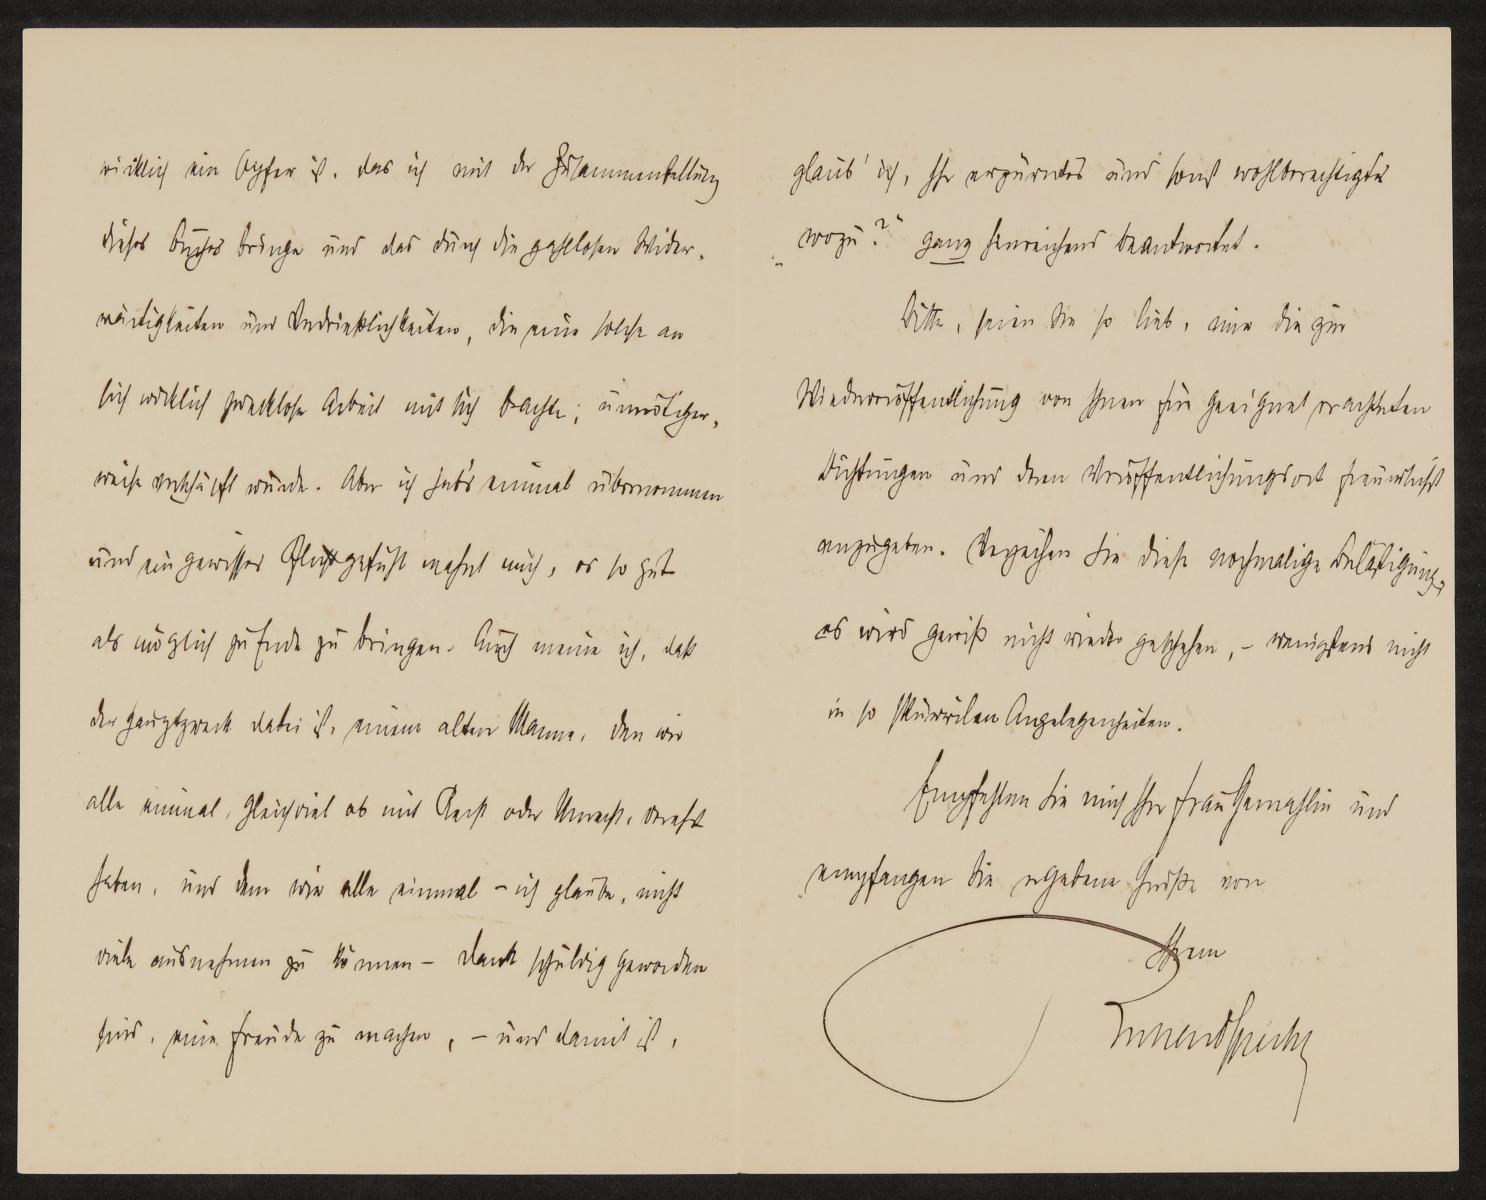 wirklich ein Opfer ist, das ich mit der Zusammenstellung
dieses Buches bringe und das durch die zahllosen Wider-
wärtigkeiten und Verdrießlichkeiten, die eine solche an
sich wirklich zwecklose Arbeit mit sich brachte, unnötiger-
weise verschärft wurde. Aber ich hab's einmal übernommen
und ein gewisses Pflichtgefühl mahnt mich, es so gut
als möglich zu Ende zu bringen. Auch meine ich, daß
der Hauptzweck dabei ist, einem alten Manne, den wir
alle einmal, gleichviel ob mit Recht oder Unrecht, verehrt
haben, und dem wir alle einmal – ich glaube, nicht
viele ausnehmen zu können – Dank schuldig geworden
sind, eine Freude zu machen, – und damit ist,
glaub' ich, Ihr erzürntes und sonst wohlberechtigtes
„wozu?“ ganz hinreichend beantwortet.
Bitte, seien Sie so lieb, mir die zur
Wiederveröffentlichung von Ihnen für geeignet erachteten
Dichtungen und deren Veröffentlichungsort freundlichst
anzugeben. Verzeihen Sie diese nochmalige Belästigung,
es wird gewiß nicht wieder geschehen, – wenigstens nicht
in so skurrilen Angelegenheiten.
Empfehlen Sie mich Ihrer Frau Gemahlin und
empfangen Sie ergebene Grüße von
Ihrem